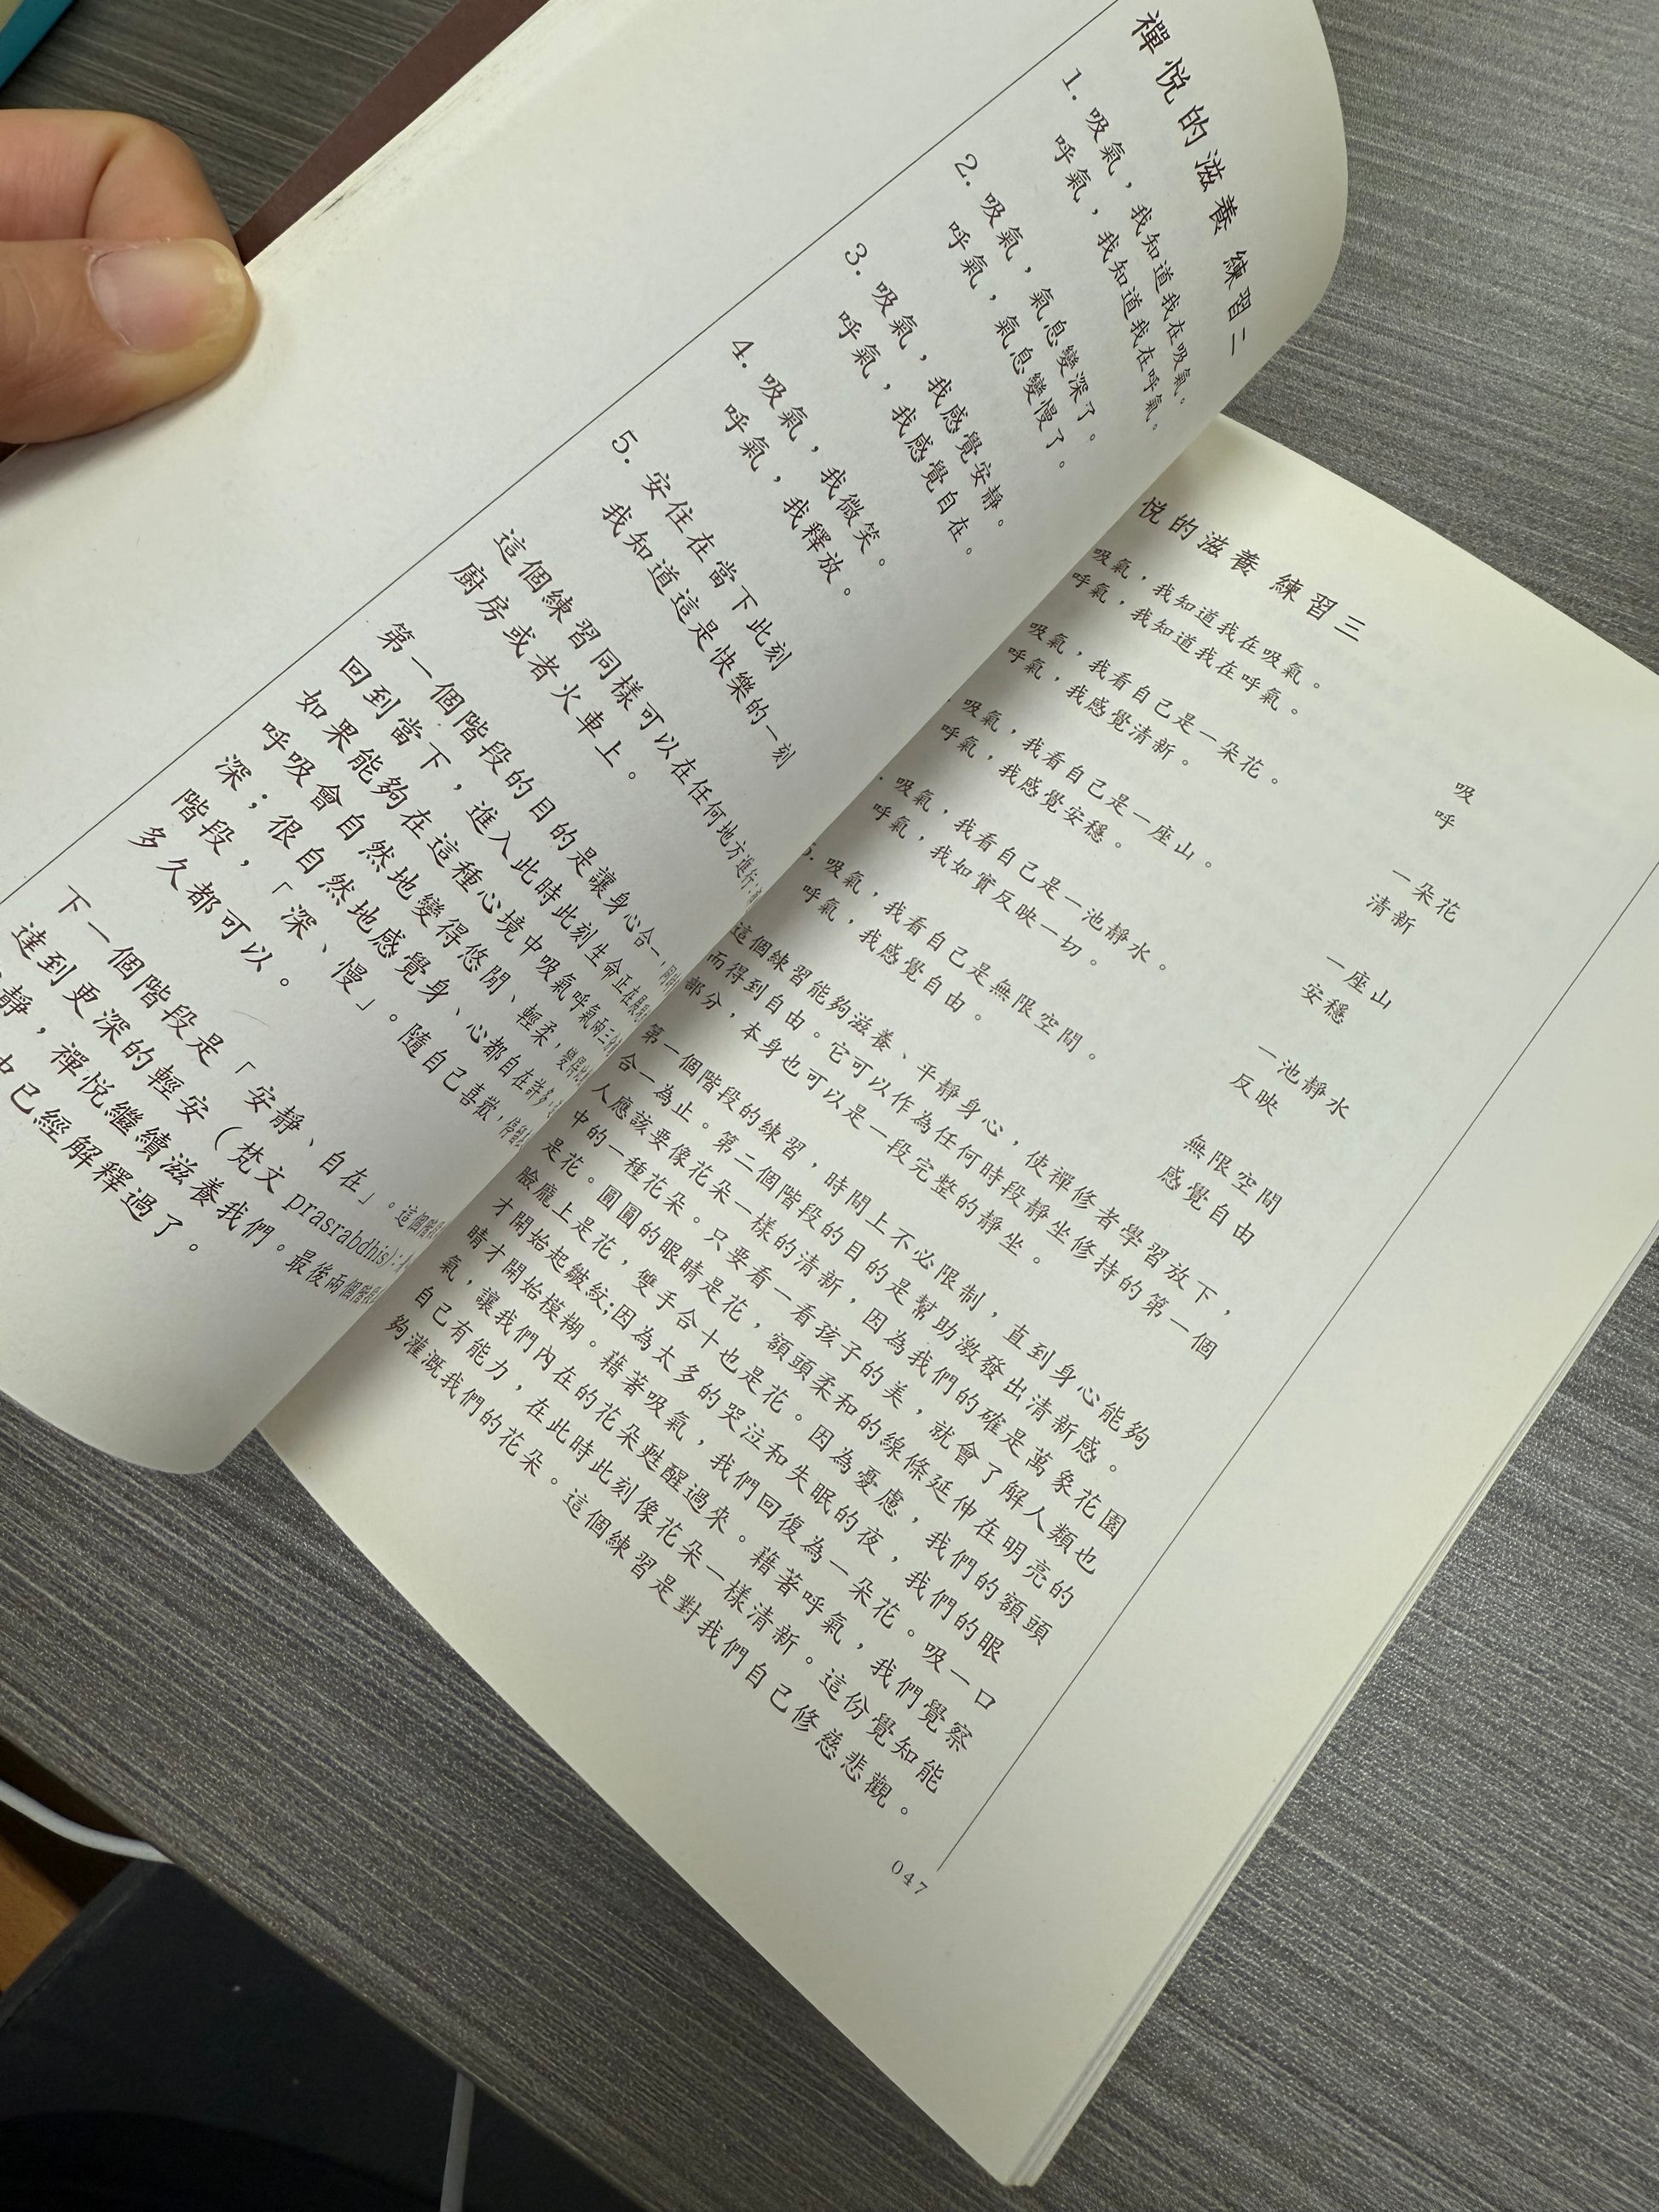 禪悅的滋養 練習二
1. 吸氣，我知道我在吸氣。
呼氣，我知道我在呼氣。
2. 吸氣，氣息變深了。
呼氣，氣息變慢了。
3. 吸氣，我感覺安靜。
呼氣，我感覺自在。
4. 吸氣，我微笑。
呼氣，我釋放。
5. 安住在當下此刻
我知道這是快樂的一刻
這個練習同樣可以在任何地方進行：
廚房或者火車上。
第一個階段的目的是讓身心合一，
回到當下，進入此時此刻生命正在
如果能夠在這種心境中吸氣呼氣兩三
呼吸會自然地變得悠閒、輕柔，
深；很自然地感覺身、心都自在許多。
階段，「深、慢」。隨自己喜歡，
多久都可以。
下一個階段是「安靜、自在」。這個階段
達到更深的輕安（梵文 prasrabdhis）：
靜，禪悅繼續滋養我們。最後兩個階段
中已經解釋過了。
悅的滋養 練習三
吸氣，我知道我在吸氣。
呼氣，我知道我在呼氣。
吸
呼
吸氣，我看自己是一朵花。
呼氣，我感覺清新。
一朵花
清新
吸氣，我看自己是一座山。
呼氣，我感覺安穩。
一座山
安穩
吸氣，我看自己是一池靜水。
呼氣，我如實反映一切。
一池靜水
反映
5. 吸氣，我看自己是無限空間。
呼氣，我感覺自由。
無限空間
感覺自由
這個練習能夠滋養、平靜身心，使禪修者學習放下，
而得到自由。它可以作為任何時段靜坐修持的第一個
部分，本身也可以是一段完整的靜坐。
第一個階段的練習，時間上不必限制，直到身心能夠
合一為止。第二個階段的目的是幫助激發出清新感。
人應該要像花朵一樣的清新，因為我們的確是萬象花園
中的一種花朵。只要看一看孩子的美，就會了解人類也
是花。圓圓的眼睛是花，額頭柔和的線條延伸在明亮的
臉龐上是花，雙手合十也是花。因為憂慮，我們的額頭
才開始起皺紋;因為太多的哭泣和失眠的夜，我們的眼
睛才開始模糊。藉著吸氣，我們回復為一朵花。吸一口
氣，讓我們內在的花朵甦醒過來。藉著呼氣，我們覺察
自己有能力，在此時此刻像花朵一樣清新。這份覺知能
夠灌溉我們的花朵。這個練習是對我們自己修慈悲觀。
047